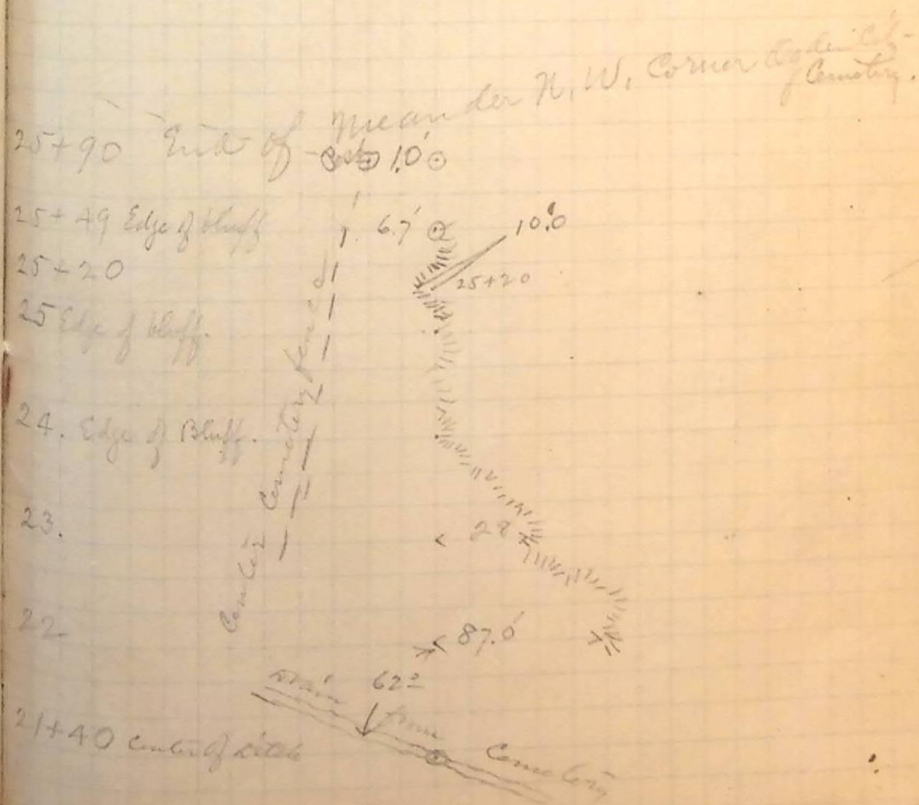 25+90 End of Meander N. W. Corner Ogden City Cemetery.
1.0'
25+49 Edge of bluff 6.7' 10.0
25+20 25+20
25 Edge of bluff.
24. Edge of Bluff.
Center Cemetery fence
23. 28
22 87.0'
62°
Drain from Cemetery
21+40 Center of ditch